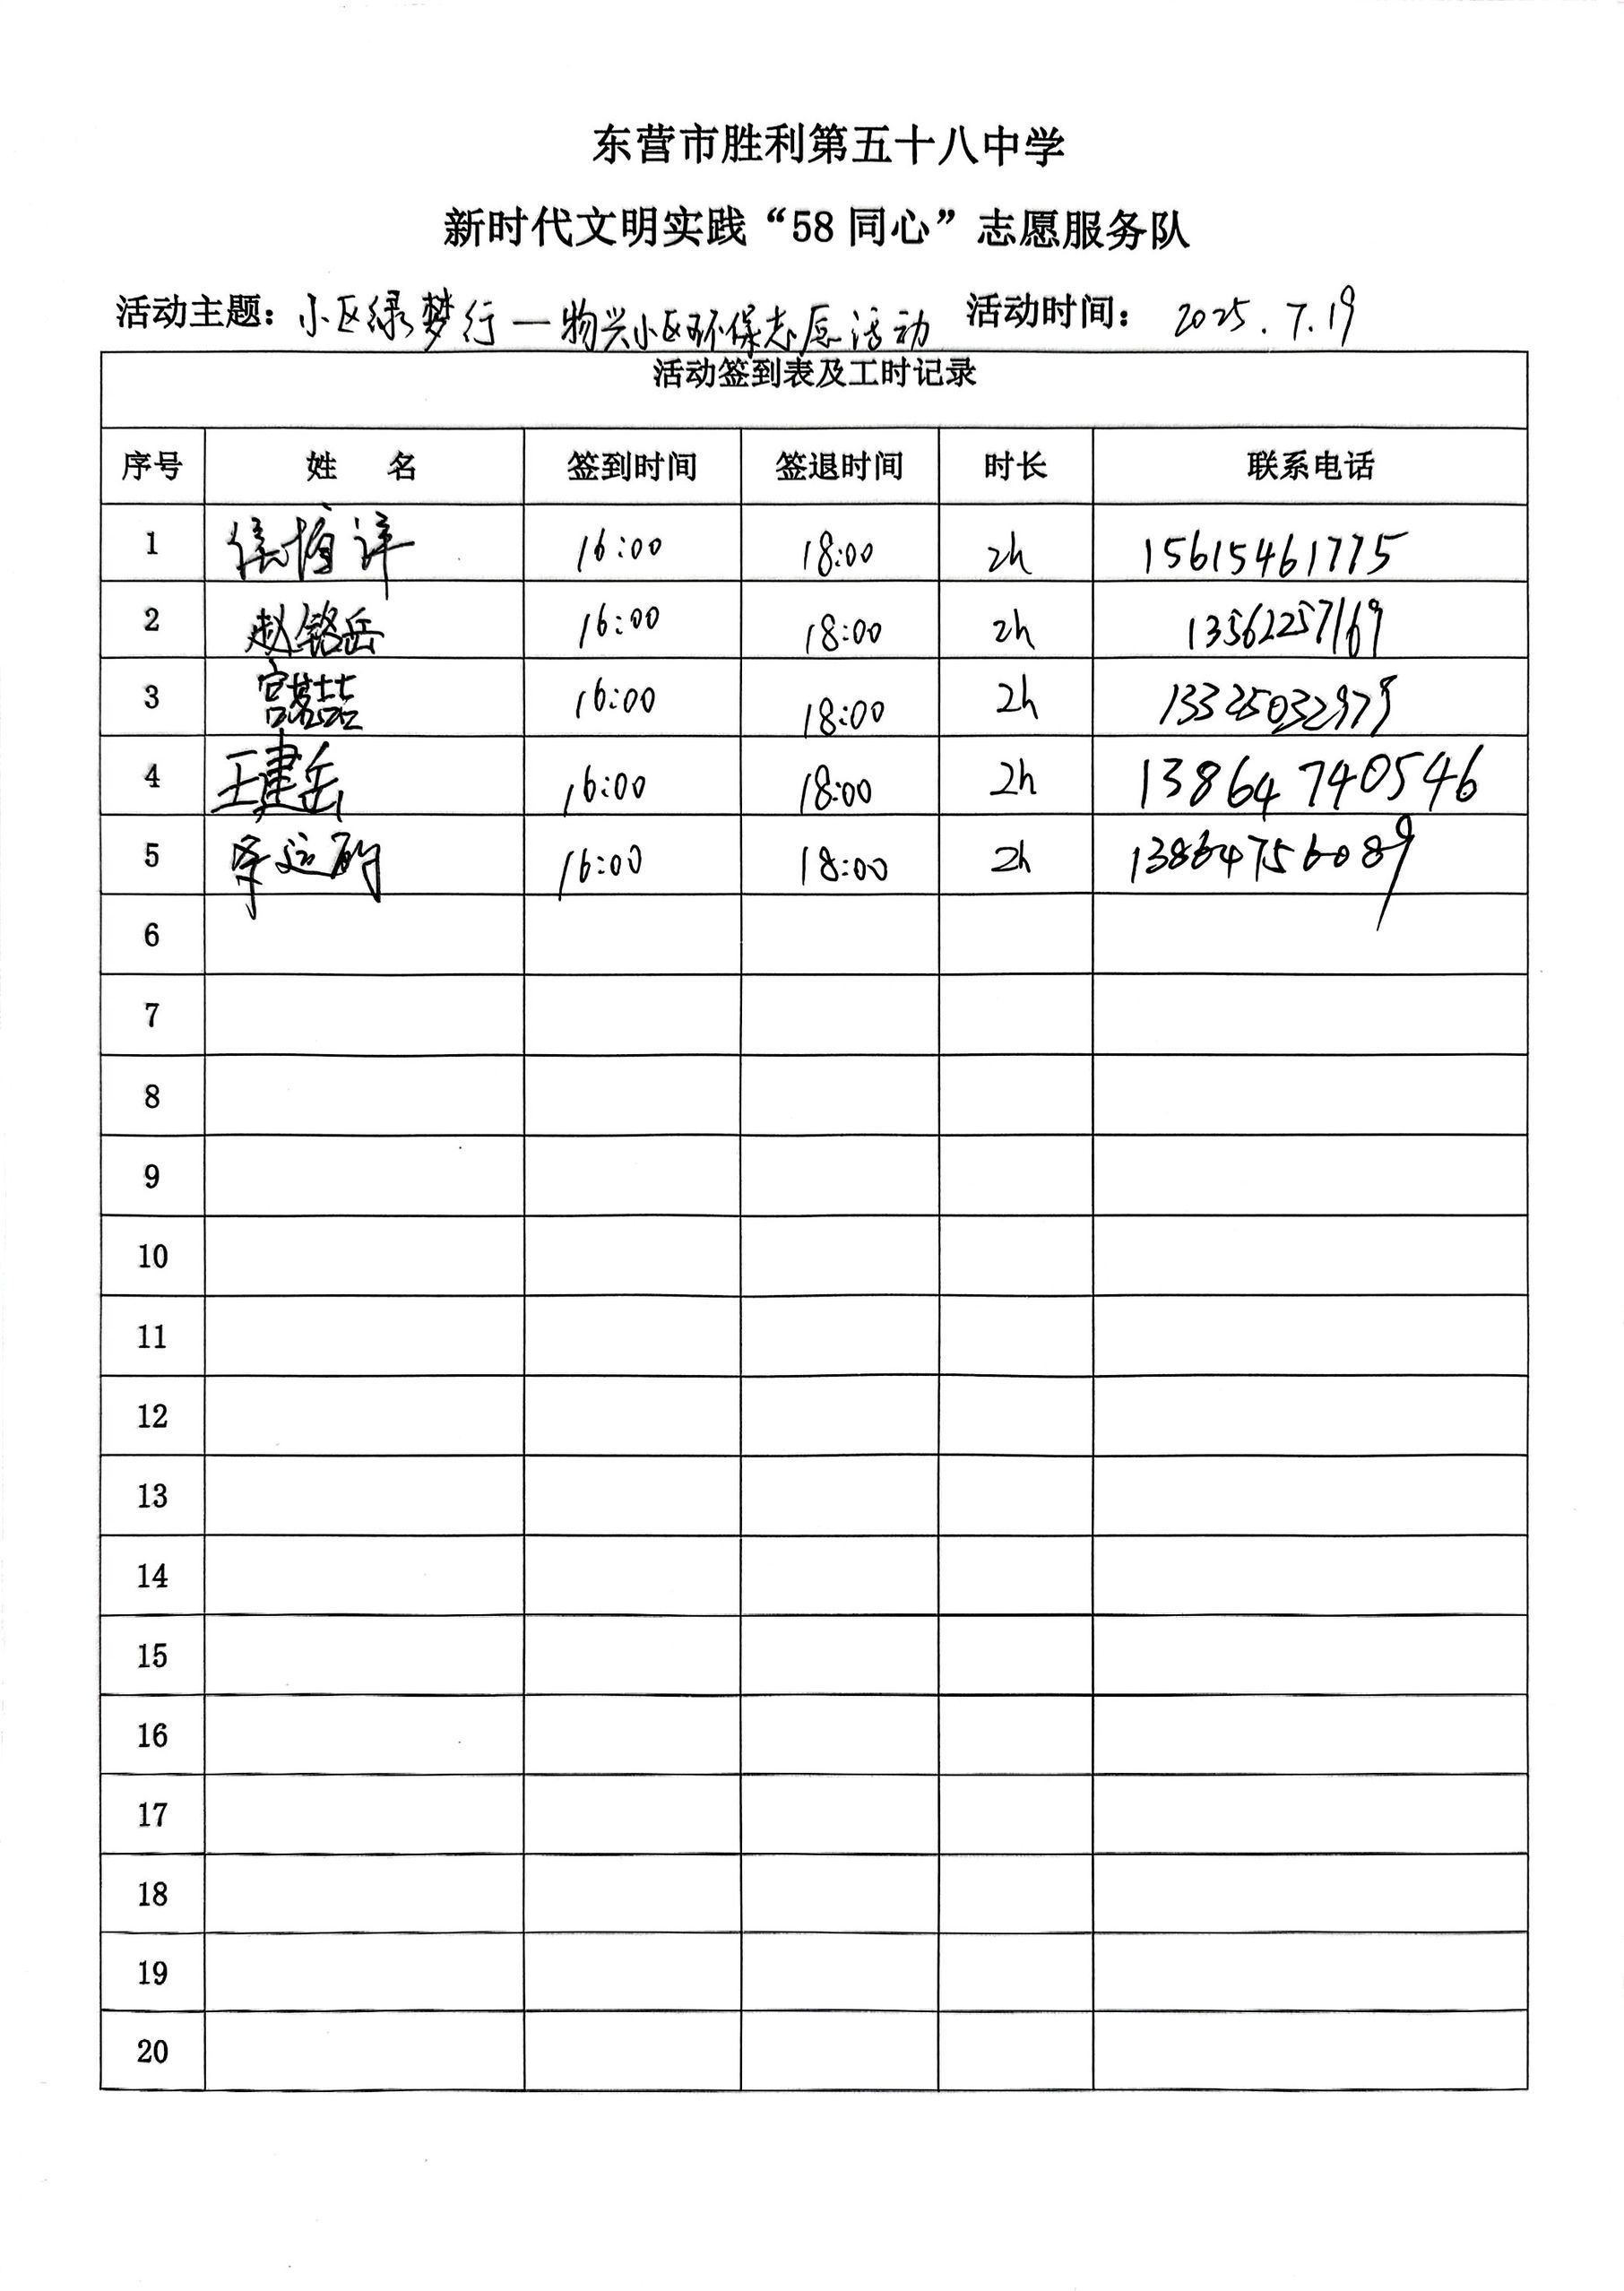 东营市胜利第五十八中学
新时代文明实践“58同心”志愿服务队
活动主题：小区绿梦行一物兴小区环保志愿活动 活动时间： 2025.7.19
活动签到表及工时记录
序号 姓 名 签到时间 签退时间 时长 联系电话
1 16:00 18:00 2h 15615461775
2 赵铭岳 16:00 18:00 2h 13562257169
3 宫喆 16:00 18:00 2h 13325032979
4 王建岳 16:00 18:00 2h 13864740546
5 16:00 18:00 2h 13864756089
6
7
8
9
10
11
12
13
14
15
16
17
18
19
20